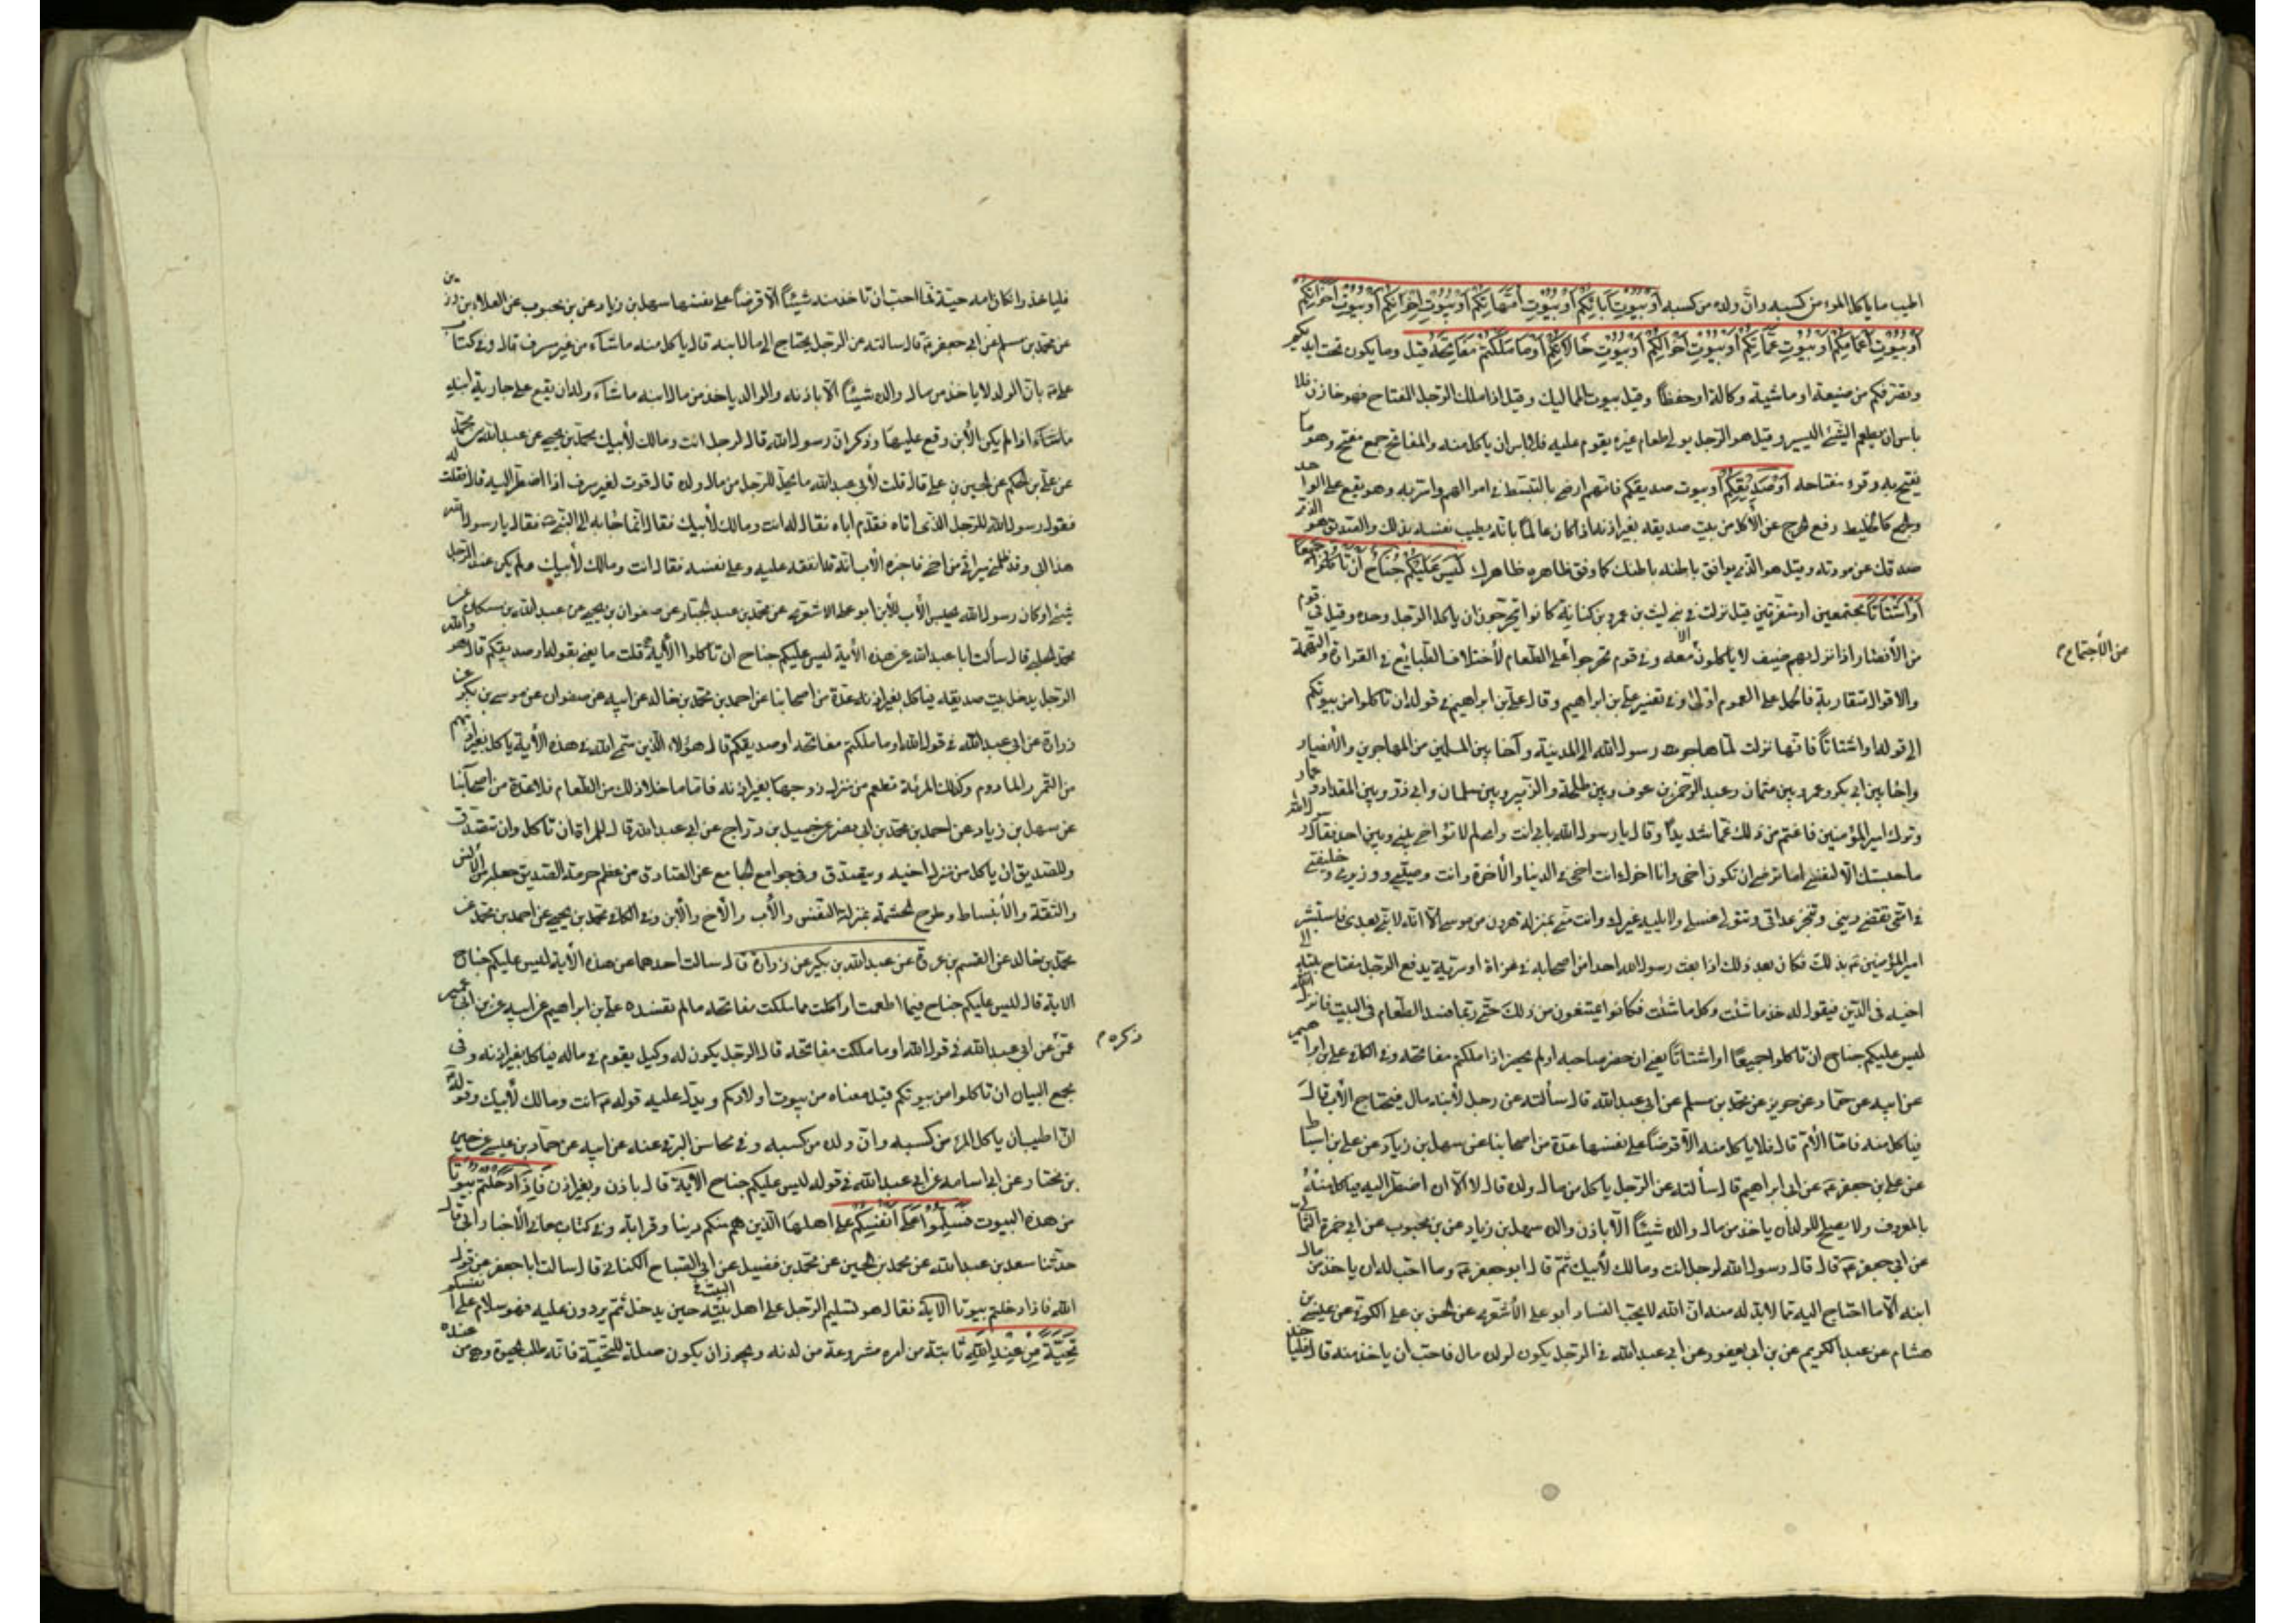 اطيب ما ياكل المرء من كسبه وانّ ولده من كسبه اَوْ بُيُوْتِ آبَائِكُمْ اَوْ بُيُوْتِ اُمَّهَاتِكُمْ اَوْ بُيُوْتِ اِخْوَانِكُمْ اَوْ بُيُوْتِ اَخَوَاتِكُمْ
اَوْ بُيُوْتِ اَعْمَامِكُمْ اَوْ بُيُوْتِ عَمَّاتِكُمْ اَوْ بُيُوْتِ اَخْوَالِكُمْ اَوْ بُيُوْتِ خَالَاتِكُمْ اَوْ مَا مَلَكْتُمْ مَفَاتِحَهُ قيل وما يكون تحت ايديكم
وتصرفكم من ضيعة او ماشية وكالة او حفظاً وقيل بيوت المماليك وقيل اذا ملك الرّجل المفتاح فهو خازن فلا
باس ان يطعم الشّئ اليسير وقيل هو الرّجل يولى طعام غيره يقوم عليه فلا باس ان ياكل منه والمفاتح جمع مفتح وهو ما
يفتح به وقرء مفتاحه اَوْ صَدِيْقِكُمْ او بيوت صديقكم فانهم ارضى بالتبسّط فى اموالهم واسرّ به وهو يقع على الواحد
والجمع كالخليط رفع الحرج عن الأكل من بيت صديقه بغير اذنه اذا كان عالماً بانّه يطيب نفسه بذلك والصديق هو الذى
صدقك عن مودته وقيل هو الذى يوافق باطنه باطنك كما وفق ظاهره ظاهرك لَيْسَ عَلَيْكُمْ جُنَاحٌ اَنْ تَأكُلُوْا جَمِيْعاً
اَوْ اَشْتَاتاً مجتمعين او متفرقين قيل نزلت فى بنى ليث بن عمرو بن كنانة كانوا يتحرجون ان ياكل الرّجل وحده وقيل فى قوم
من الأنصار اذا نزل بهم ضيف لا ياكلون الا معه وفى قوم تحرجوا على الطّعام لأختلاف الطّبائع فى القزازة والنهمة
من الأجتماع م
والاقوال متقاربة فالحمل على العموم اولى وفى تفسير على بن ابراهيم وقال على بن ابراهيم فى قوله ان تاكلوا من بيوتكم
الى قوله او اشتاتاً فانّها نزلت لمّا هاجر رسول الله الى المدينة وآخا بين المسلمين من المهاجرين والأنصار
واخا بين ابى بكر وعمر وبين عثمان وعبد الرّحمن بن عوف وبين طلحة والزّبير وبين سلمان وابى ذرّ وبين المقداد وعمار
وترك امير المؤمنين فاغتم من ذلك غمّا شديداً وقال يا رسول الله بابى انت وامى لم لا تؤاخى بينى وبين احد فقال رسول الله
ما حبستك الّا لنفسى اما ترضى ان تكون اخى وانا اخوك انت اخى فى الدنيا والأخرة وانت وصيّى ووزيرى وخليفتى
فى امّتى تقضى دينى وتنجز عداتى وتتولى غسلى ولا يليه غيرك وانت منّى بمنزلة هرون من موسى الّا انّه لا نبى بعدى فاستبشر
امير المؤمنين بذلك فكان بعد ذلك اذا بعث رسول الله احدا من اصحابه فى غزاة او سرّية يدفع الرّجل مفتاح بيته الى
اخيه فى الدّين فيقول له خذ ما شئت وكل ما شئت فكانوا يمتنعون من ذلك حتّى ربّما فسد الطّعام فى البيت فانزل الله
ليس عليكم جناح ان تاكلوا جميعاً او اشتاتاً يعنى ان حضر صاحبه او لم يحضر اذا ملكتم مفاتحه وفى الكافى على بن ابراهيم
عن ابيه عن حمّاد عن حريز عن محمّد بن مسلم عن ابى عبد الله قال سألته عن رجل لأبنه مال فيحتاج الأب قال
فياكل منه فامّا الأم قال فلا ياكل منه الّا قرضاً على نفسها عدّة من اصحابنا عن سهل بن زياد عن على بن اسباط
عن على بن جعفر عن ابى ابراهيم قال سألته عن الرّجل ياكل من مال ولده قال لا الّا ان اضطر اليه فياكل منه
بالمعروف ولا يصلح للولد ان ياخذ من مال والده شيئاً الّا باذن والده سهل بن زياد عن بن محبوب عن ابى حمزة الثّمالى
عن ابى جعفر قال قال رسول الله لرجل انت ومالك لأبيك ثمّ قال ابو جعفر وما احب له ان ياخذ من مال
ابنه الّا ما احتاج اليه ممّا لابدّ له منه انّ الله لا يحب الفساد ابو على الأشعرى عن الحسن بن على الكوفى عن عبيس بن
هشام عن عبد الكريم عن بن ابى يعفور عن ابى عبد الله فى الرّجل يكون لولده مال فاحب ان ياخذ منه قال فلياخذ
فلياخذ وان كانت امه حيّة فما احب ان تاخذ منه شيئاً الّا قرضاً على نفسها سهل بن زياد عن بن محبوب عن العلاء بن رزين
عن محمّد بن مسلم عن ابى جعفر قال سالته عن الرّجل يحتاج الى مال ابنه قال ياكل منه ما شآء من غير سرف قال وفى كتاب
على بانّ الولد لا ياخذ من مال والده شيئاً الّا باذنه والوالد ياخذ من مال ابنه ما شآء وله ان يقع على جارية ابنه
ما شآء اذا لم يكن الأبن وقع عليها وذكر انّ رسول الله قال لرجل انت ومالك لأبيك محمّد بن يحيى عن عبد الله بن محمّد
عن على بن الحكم عن الحسين بن على قال قلت لأبى عبد الله ما يحلّ للرّجل من مال ولده قال قوت لغير سرف اذا اضطر اليه قال فقلت له
فقول رسول الله للرّجل الذى اتاه فقدّم اباه فقال له انت ومالك لأبيك فقال انّما جآء به الى النّبى فقال يا رسول الله
هذا ابى وقد ظلمنى ميراثى من امى فاخبره الأب انّه قد انفقه عليه وعلى نفسه فقال انت ومالك لأبيك ولم يكن عند الرّجل
شئ او كان رسول الله يحبس الأب للأبن ابو على الاشعرى عن محمّد بن عبد الجبّار عن صفوان بن يحيى عن عبد الله بن مسكان عن
محمّد الحلبى قال سألت ابا عبد الله عن هذه الأية ليس عليكم جناح ان تاكلوا الأية قلت ما يعنى بقوله او صديقكم قال هو والله
الرّجل يدخل بيت صديقه فياكل بغير اذنه عدّة من اصحابنا عن احمد بن محمّد بن خالد عن ابيه عن صفوان عن موسى بن بكر عن
زرارة عن ابى عبد الله فى قول الله او ما ملكتم مفاتحه او صديقكم قال هؤلاء الّذين سمّى الله فى هذه الأية ياكل بغير اذنهم
من التّمر والمادوم وكذلك المرئة تطعم من منزل زوجها بغير اذنه فامّا ما خلا ذلك من الطّعام فلا عدّة من اصحآبنا
عن سهل بن زياد عن احمد بن محمّد بن ابى نصر عن جميل بن درّاج عن ابى عبد الله قال للمراة ان تاكل وان تتصدّق
وللصّديق ان ياكل من منزل اخيه ويتصدّق وفى جوامع الجامع عن الصّادق من عظم حرمة الصّديق جعل من الأنس
والثّقة والأنبساط وطرح الحشمة بمنزلة النّفس والأب والأخ والأبن وفى الكافى محمّد بن يحيى عن احمد بن محمّد عن
محمّد بن خالد عن القسم بن عروة عن عبد الله بن بكير عن زرارة قال سالت احدهما عن هذه الأية ليس عليكم جناح
الاية قال ليس عليكم جناح فيما اطعمت او اكلت مما ملكت مفاتحه ما لم تفسده على بن ابراهيم عن ابيه عن بن ابى عمير
عمّن ذكره م عن ابى عبد الله فى قول الله او ما ملكت مفاتحه قال الرّجل يكون له وكيل يقوم فى ماله فياكل بغير اذنه وفى
مجمع البيان ان تاكلوا من بيوتكم قيل معناه من بيوت اولادكم ويدل عليه قوله انت ومالك لأبيك وقوله
انّ اطيب ما ياكل المرء من كسبه وانّ ولده من كسبه وفى محاسن البرقى عنه عن ابيه عن حمّاد بن عيسى عن حسين
بن مختار عن ابى اسامة عن ابى عبد الله فى قوله ليس عليكم جناح الأية قال باذن وبغير اذن فَاِذَا دَخَلْتُمْ بُيُوْتاً
من هذه البيوت فَسَلِّمُوْا عَلَى اَنْفُسِكُمْ على اهلها الّذين هم منكم دينا وقرابة وفى كتاب معانى الأخبار ابى قال
حدّثنا سعد بن عبد الله عن محمد بن الحسين عن محمّد بن فضيل عن ابى الصّباح الكنانى قال سالت ابا جعفر عن قول
الله فاذا دخلتم بيوتا الاية فقال هو تسليم الرّجل على اهل البيت حين يدخل ثمّ يردون عليه فهو سلام على انفسكم
تَحِيَّةً مِنْ عِنْدِ اللهِ ثابتة من امره مشروعة من لدنه ويجوز ان يكون صلة للتّحيّة فانّه طلب الحيوة وهى من عنده